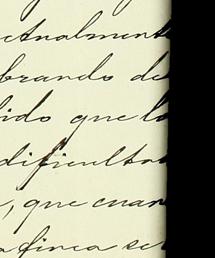 ctualment
brando de
ido que l
dificulta
, que cuan
a finca se